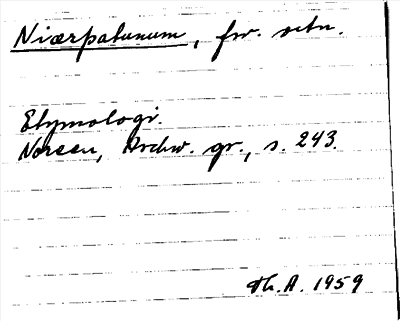 Niærpatunum, fw. sctn.
Etymologi.
Noreen, Aschw. gr., s. 243.
Th. A. 1959